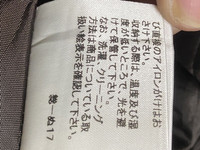 び直後のアイロンがけはお
さけ下さい。
収納する際は、温度及び湿
度が低いところで、光を避
けて保管して下さい。
なお、洗濯、クリーニング
方法は商品についている取
扱い絵表示を確認して下さい。
ぬ17